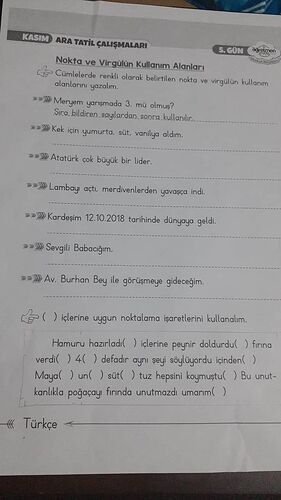 KASIM ARA TATİL ÇALIŞMALARI
5. GÜN
öğretmen
Nokta ve Virgülün Kullanım Alanları
Cümlelerde renkli olarak belirtilen nokta ve virgülün kullanım
alanlarını yazalım.
Meryem yarışmada 3. mü olmuş?
Sıra bildiren sayılardan sonra kullanılır.
Kek için yumurta, süt, vanilya aldım.
Atatürk çok büyük bir lider.
Lambayı açtı, merdivenlerden yavaşça indi.
Kardeşim 12.10.2018 tarihinde dünyaya geldi.
Sevgili Babacığım,
Av. Burhan Bey ile görüşmeye gideceğim.
( ) içlerine uygun noktalama işaretlerini kullanalım.
Hamuru hazırladı( ) içlerine peynir doldurdu( ) fırına
verdi( ) 4( ) defadır aynı şeyi söylüyordu içinden( )
Maya( ) un( ) süt( ) tuz hepsini koymuştu( ) Bu unut-
kanlıkla poğaçayı fırında unutmazdı umarım( )
Türkçe